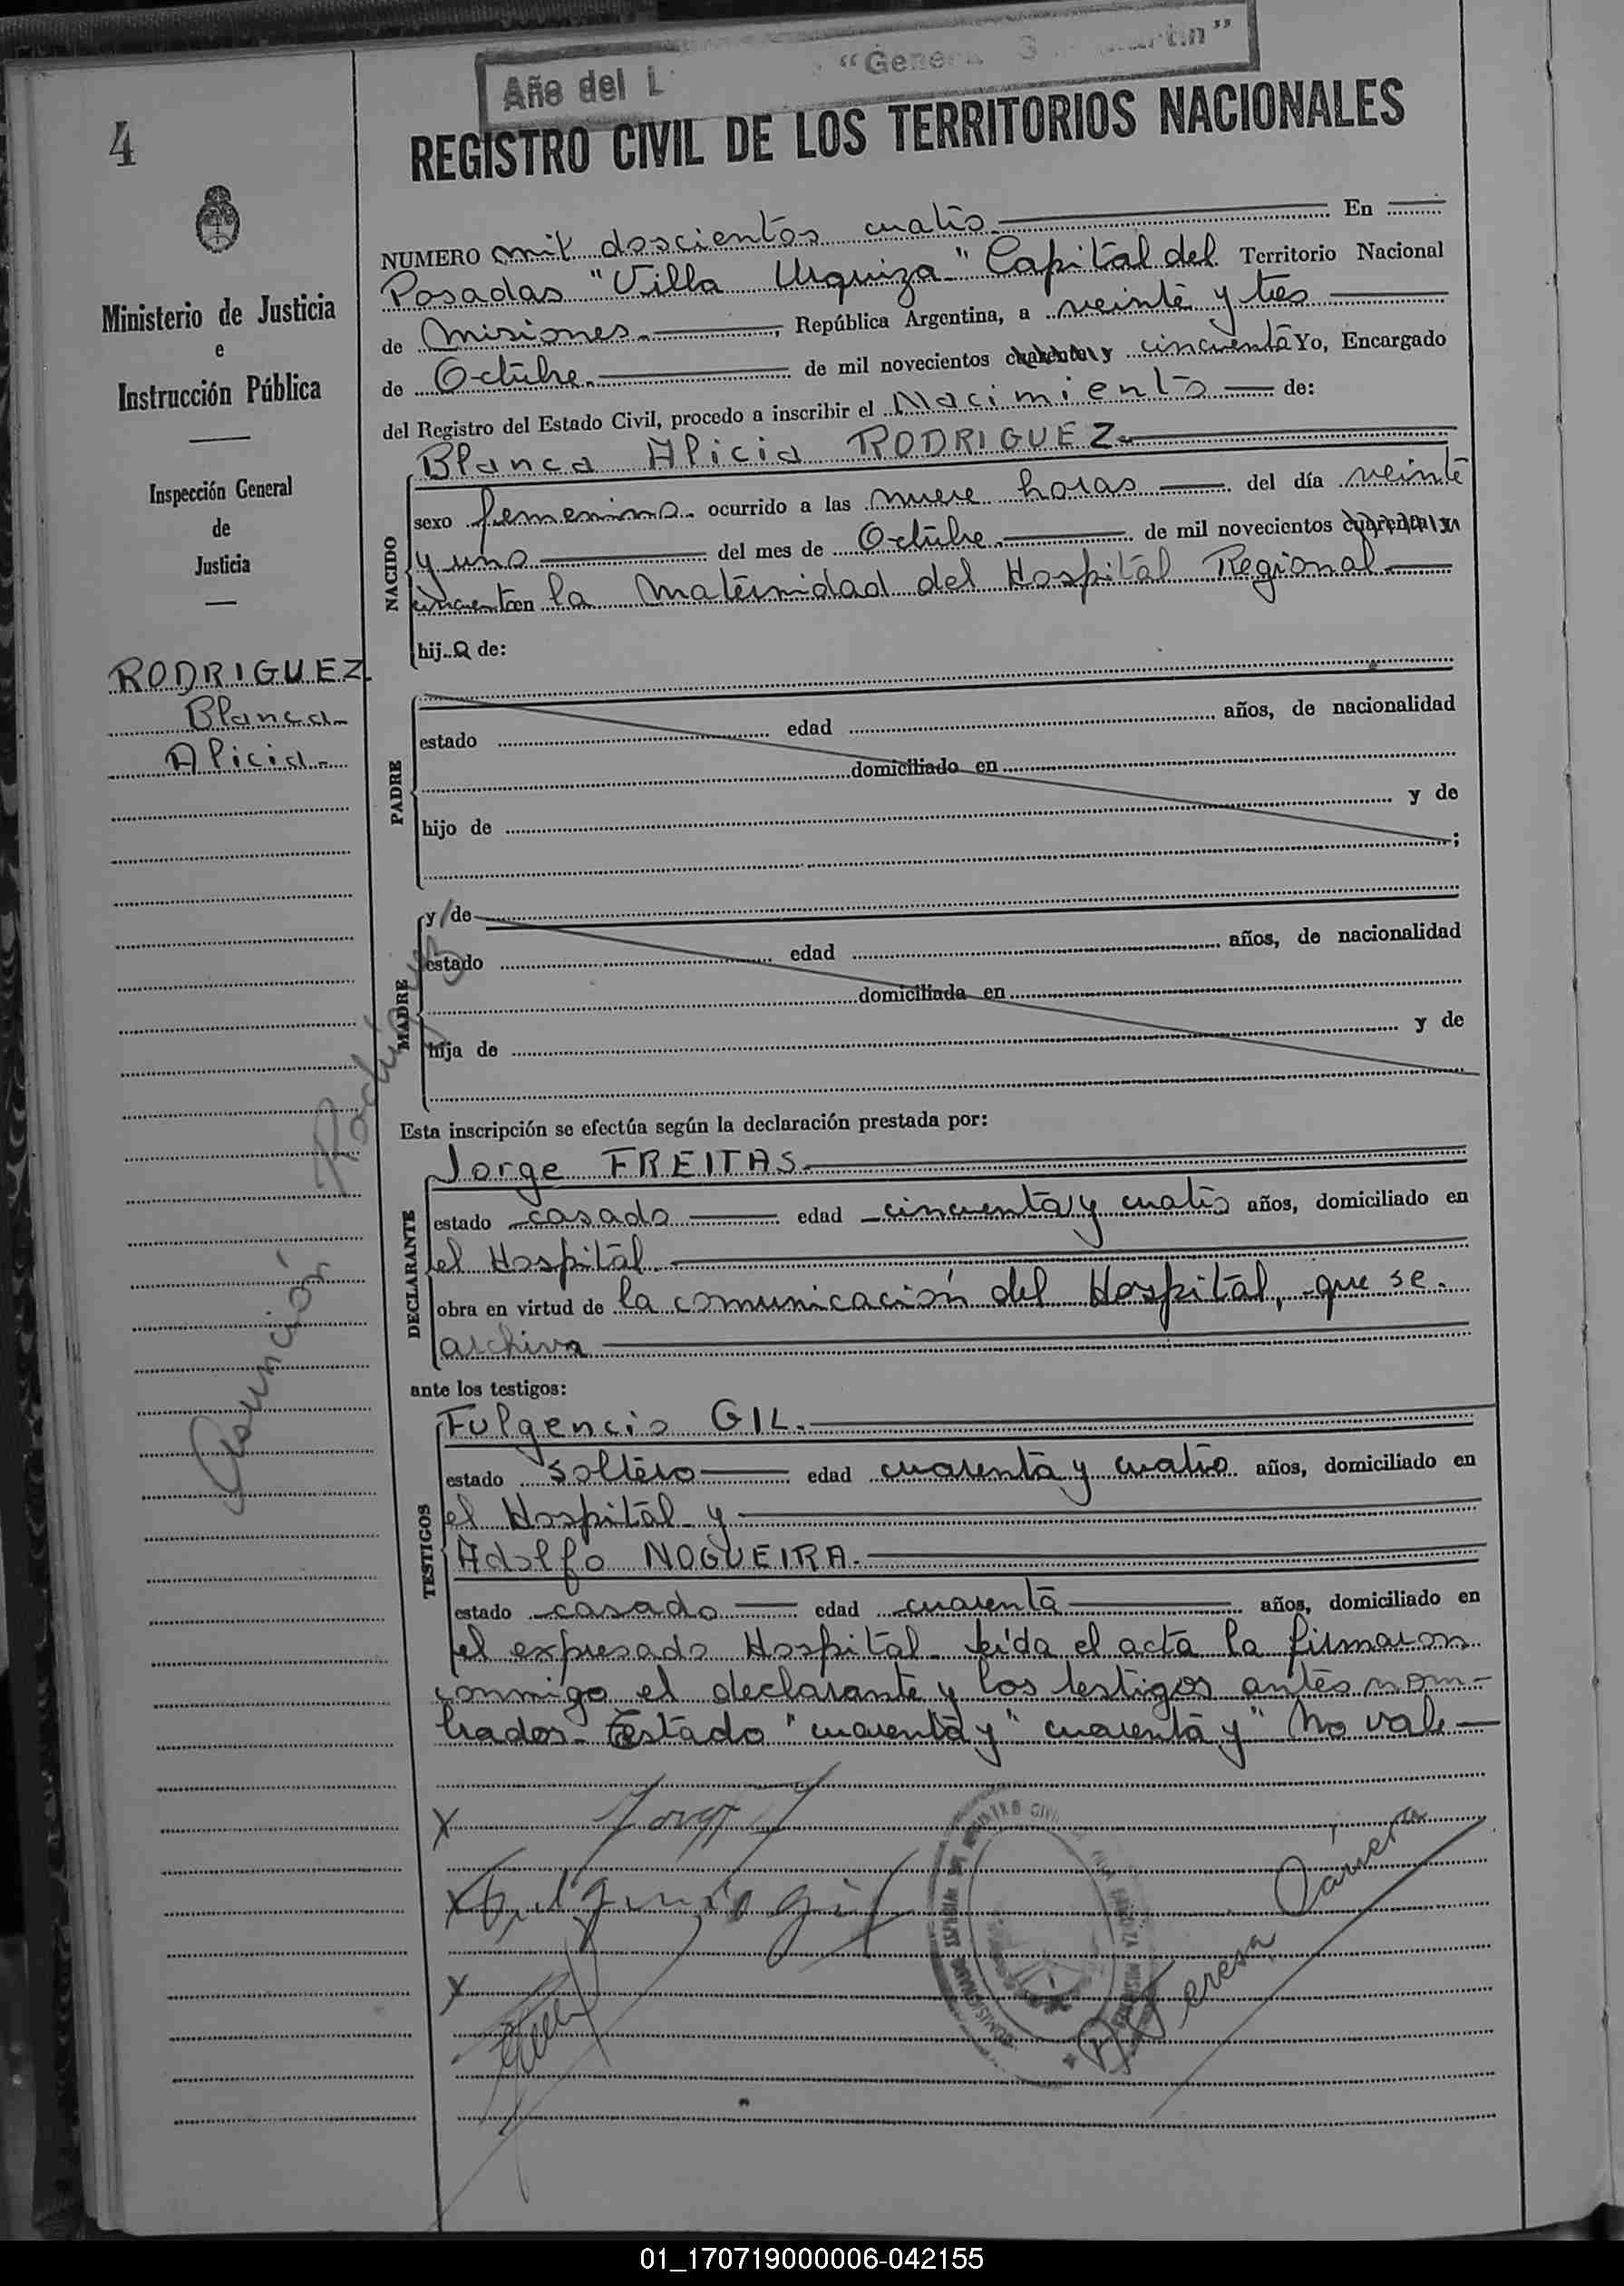 Año del L "General S Martin"
4
REGISTRO CIVIL DE LOS TERRITORIOS NACIONALES
Ministerio de Justicia
e
Instrucción Pública
Inspección General
de
Justicia
RODRIGUEZ
Blanca
Alicia.
Asunción Rodríguez
NUMERO mil doscientos cuatro En
Posadas "Villa Urquiza" Capital del Territorio Nacional
de Misiones. , República Argentina, a veinte y tres
de Octubre. de mil novecientos cuarenta y cincuenta Yo, Encargado
del Registro del Estado Civil, procedo a inscribir el Nacimiento de:
NACIDO
Blanca Alicia RODRIGUEZ.
sexo femenino. ocurrido a las nueve horas del día veinte
y uno del mes de Octubre. de mil novecientos cuarenta y
cincuenta en la Maternidad del Hospital Regional
hija de:
PADRE
estado edad años, de nacionalidad
domiciliado en
hijo de y de
;
MADRE
y de
estado edad años, de nacionalidad
domiciliada en
hija de y de
Esta inscripción se efectúa según la declaración prestada por:
DECLARANTE
Jorge FREITAS.
estado casado edad cincuenta y cuatro años, domiciliado en
el Hospital.
obra en virtud de la comunicación del Hospital, que se
archiva
ante los testigos:
TESTIGOS
Fulgencio GIL.
estado soltero edad cuarenta y cuatro años, domiciliado en
el Hospital y
Adolfo NOGUEIRA.
estado casado edad cuarenta años, domiciliado en
el expresado Hospital. Leída el acta la firmaron
conmigo el declarante y los testigos antes nom-
brados. Testado "cuarenta y" cuarenta y" No vale
X Jorge
X Fulgencio Gil
X
Teresa
01_170719000006-042155